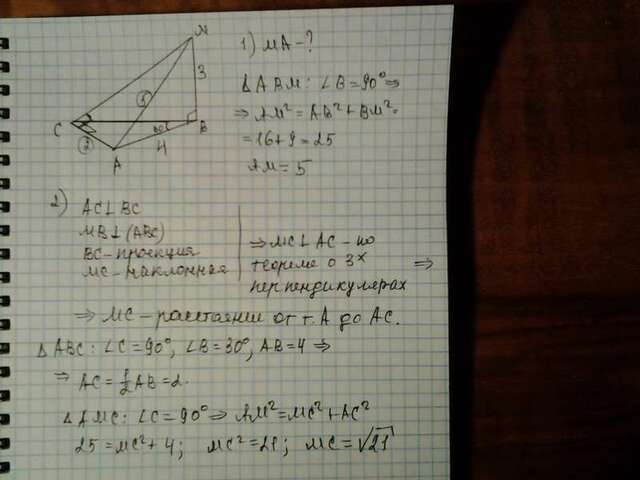 M
3
5
C
B
30°
4
2
A
1) MA - ?
△ABM: ∠B = 90° ⇒
⇒ AM² = AB² + BM² =
= 16 + 9 = 25
AM = 5
2) AC ⊥ BC
MB ⊥ (ABC)
BC - проекция
MC - наклонная
⇒ MC ⊥ AC - по
теореме о 3х
перпендикулярах ⇒
⇒ MC - расстояние от т. A до AC.
△ABC: ∠C = 90°, ∠B = 30°, AB = 4 ⇒
⇒ AC = 1/2 AB = 2.
△AMC: ∠C = 90° ⇒ AM² = MC² + AC²
25 = MC² + 4; MC² = 21; MC = √21